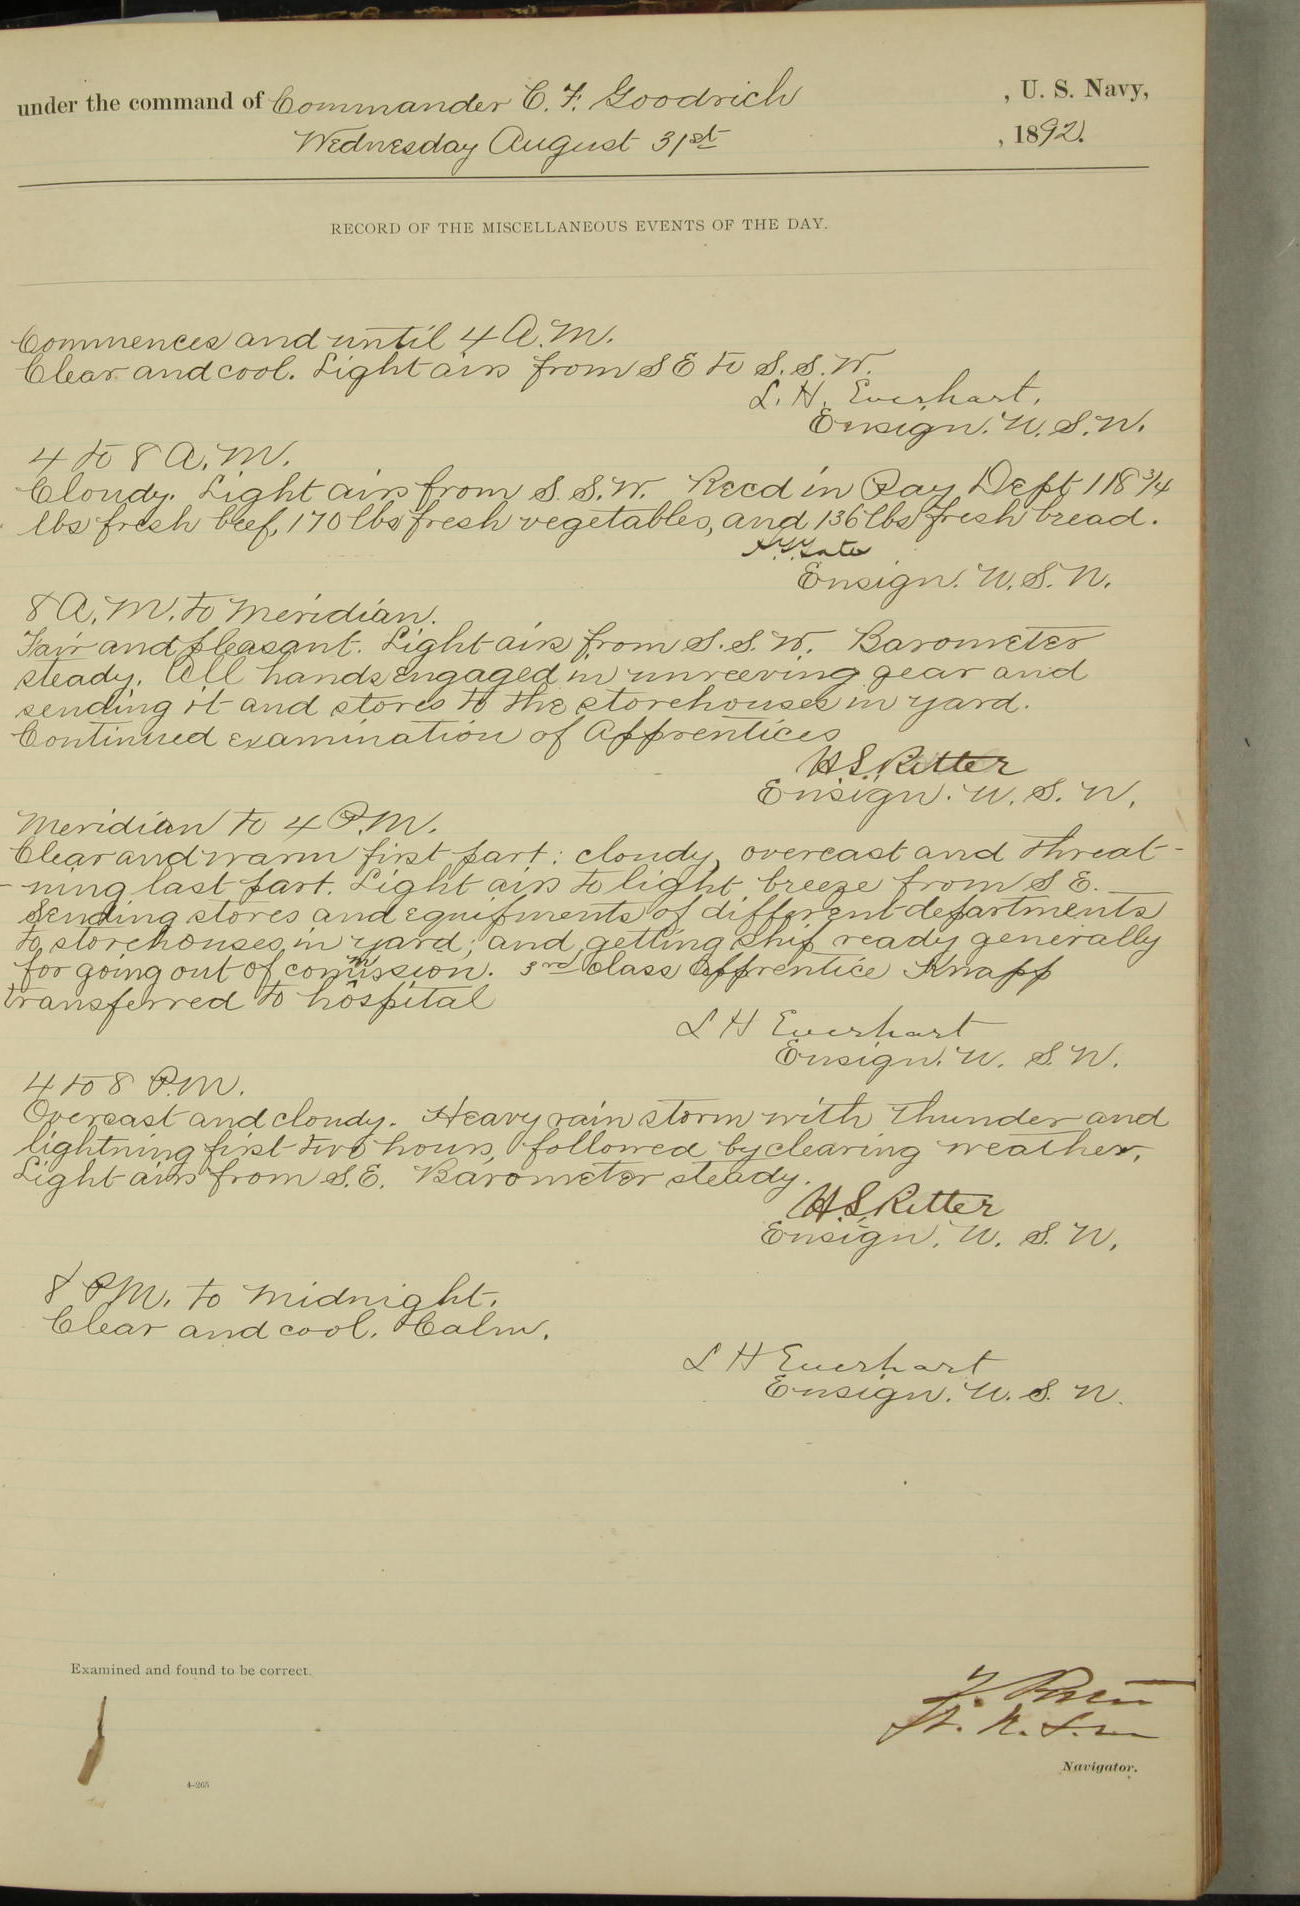 under the command of Commander C. F. Goodrich, U. S. Navy,
Wednesday August 31st, 1892.
RECORD OF THE MISCELLANEOUS EVENTS OF THE DAY.
Commences and until 4 A.M.
Clear and cool. Light airs from S E to S. S. W.
L. H. Everhart.
Ensign. U. S. N.
4 to 8 A. M.
Cloudy. Light airs from S. S. W. Recd in Pay Dept 118 3/4
lbs fresh beef, 170 lbs fresh vegetables, and 136 lbs fresh bread.
Ensign. U. S. N.
8 A. M. to Meridian.
Fair and pleasant. Light airs from S. S. W. Barometer
steady. All hands engaged in unreeving gear and
sending it and stores to the storehouses in yard.
Continued examination of Apprentices
H S Ritter
Ensign. U. S. N.
Meridian to 4 P.M.
Clear and warm first part: cloudy, overcast and threat-
-ning last part. Light airs to light breeze from S E.
Sending stores and equipments of different departments
to storehouses in yard; and getting ship ready generally
for going out of commission. 3rd class Apprentice Knapp
transferred to hospital
L H Everhart
Ensign. U. S. N.
4 to 8 P.M.
Overcast and cloudy. Heavy rain storm with thunder and
lightning first two hours, followed by clearing weather,
Light airs from S. E. Barometer steady.
H. S. Ritter
Ensign. U. S. N.
8 P.M. to Midnight.
Clear and cool. Calm.
L H Everhart
Ensign. U. S. N.
Examined and found to be correct.
Navigator.
4-265